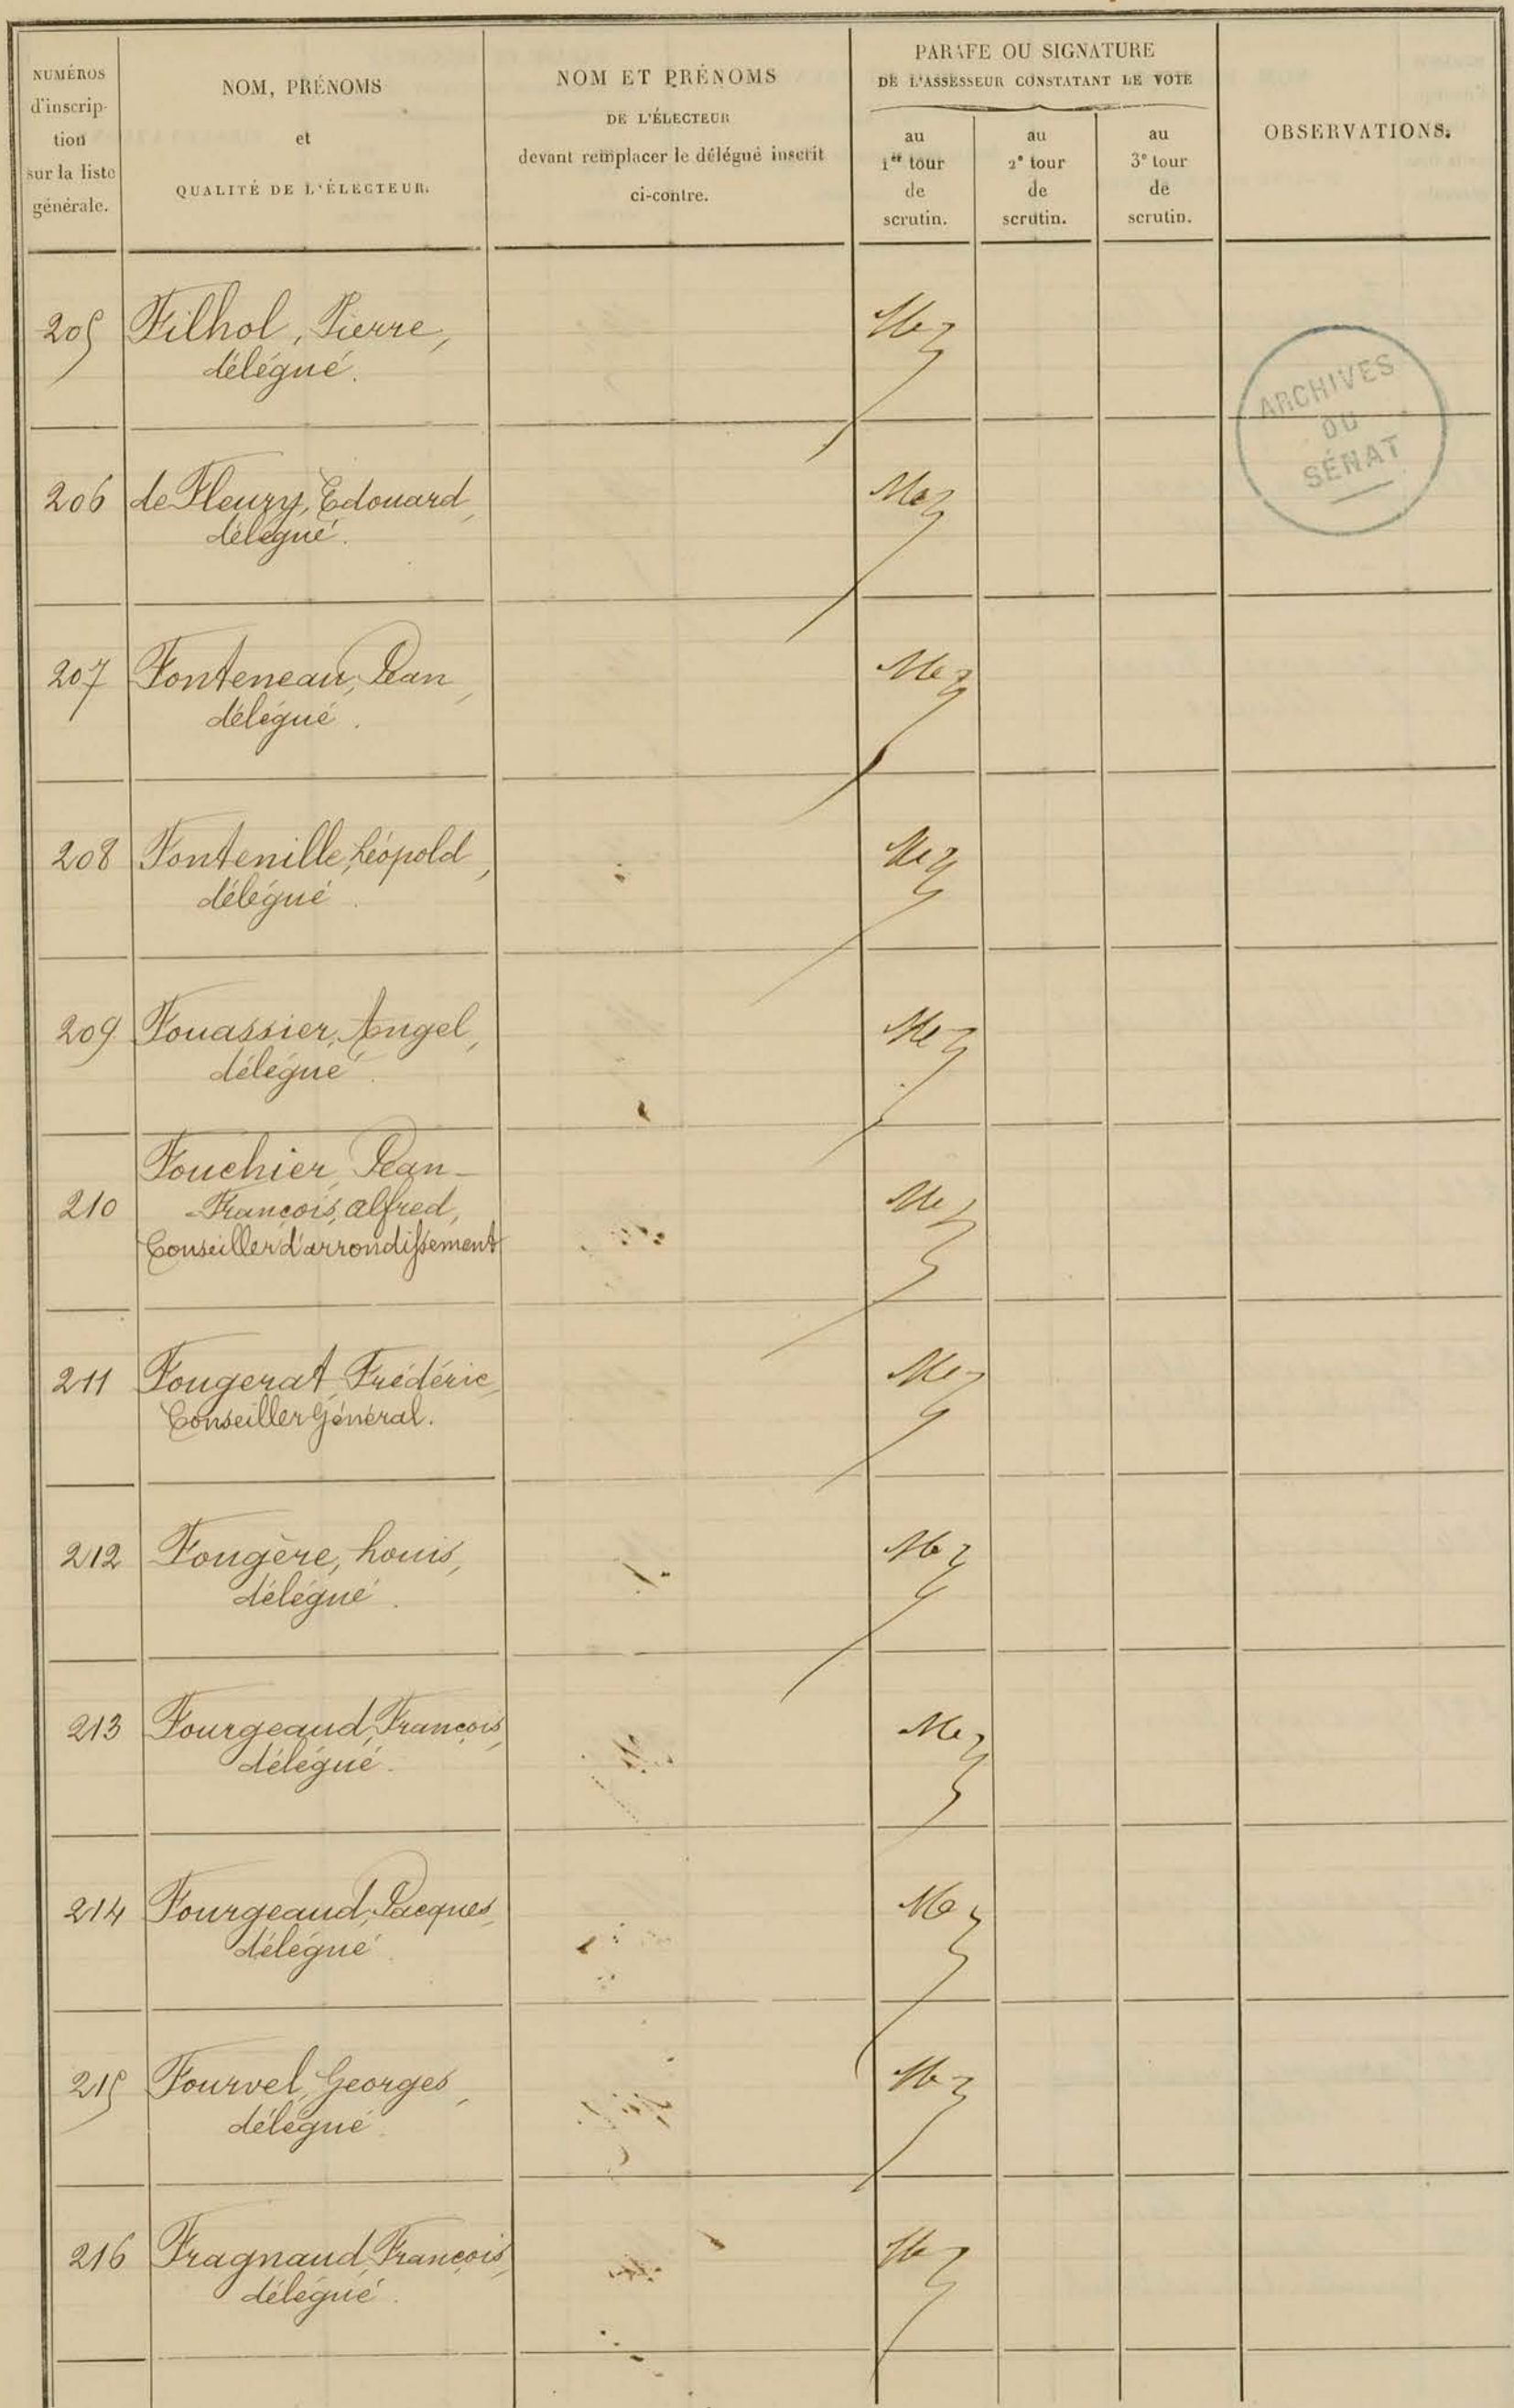 NUMÉROS
d'inscrip-
tion
sur la liste
générale.
NOM, PRÉNOMS
et
QUALITÉ DE L'ÉLECTEUR.
NOM ET PRÉNOMS
DE L'ÉLECTEUR
devant remplacer le délégué inscrit
ci-contre.
PARAFE OU SIGNATURE
DE L'ASSESSEUR CONSTATANT LE VOTE
au
1er tour
de
scrutin.
au
2e tour
de
scrutin.
au
3e tour
de
scrutin.
OBSERVATIONS.
205 Filhol, Pierre,
délégué.
ARCHIVES
DU
SÉNAT
206 de Fleury, Edouard,
délégué.
207 Fonteneau, Jean,
délégué.
208 Fontenille, Léopold,
délégué.
209 Fouassier, Angel,
délégué.
Fouchier, Jean-
210 -François, Alfred,
Conseiller d'arrondissement
211 Fougerat, Frédéric,
Conseiller Général.
212 Fougère, Louis,
délégué.
213 Fourgeaud, François,
délégué.
214 Fourgeaud, Jacques,
délégué.
215 Fourvel, Georges,
délégué.
216 Fragnaud, François,
délégué.